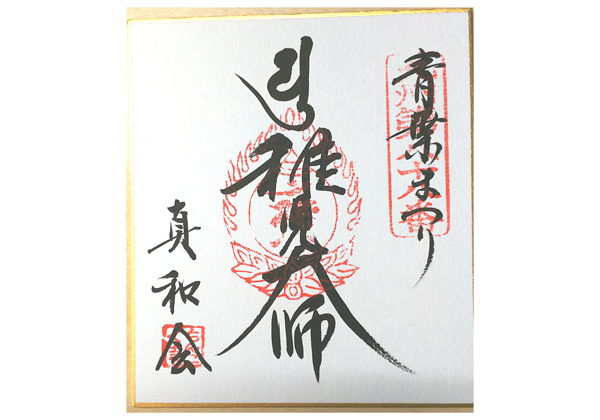 青葉まつり
稚児大師
真和会